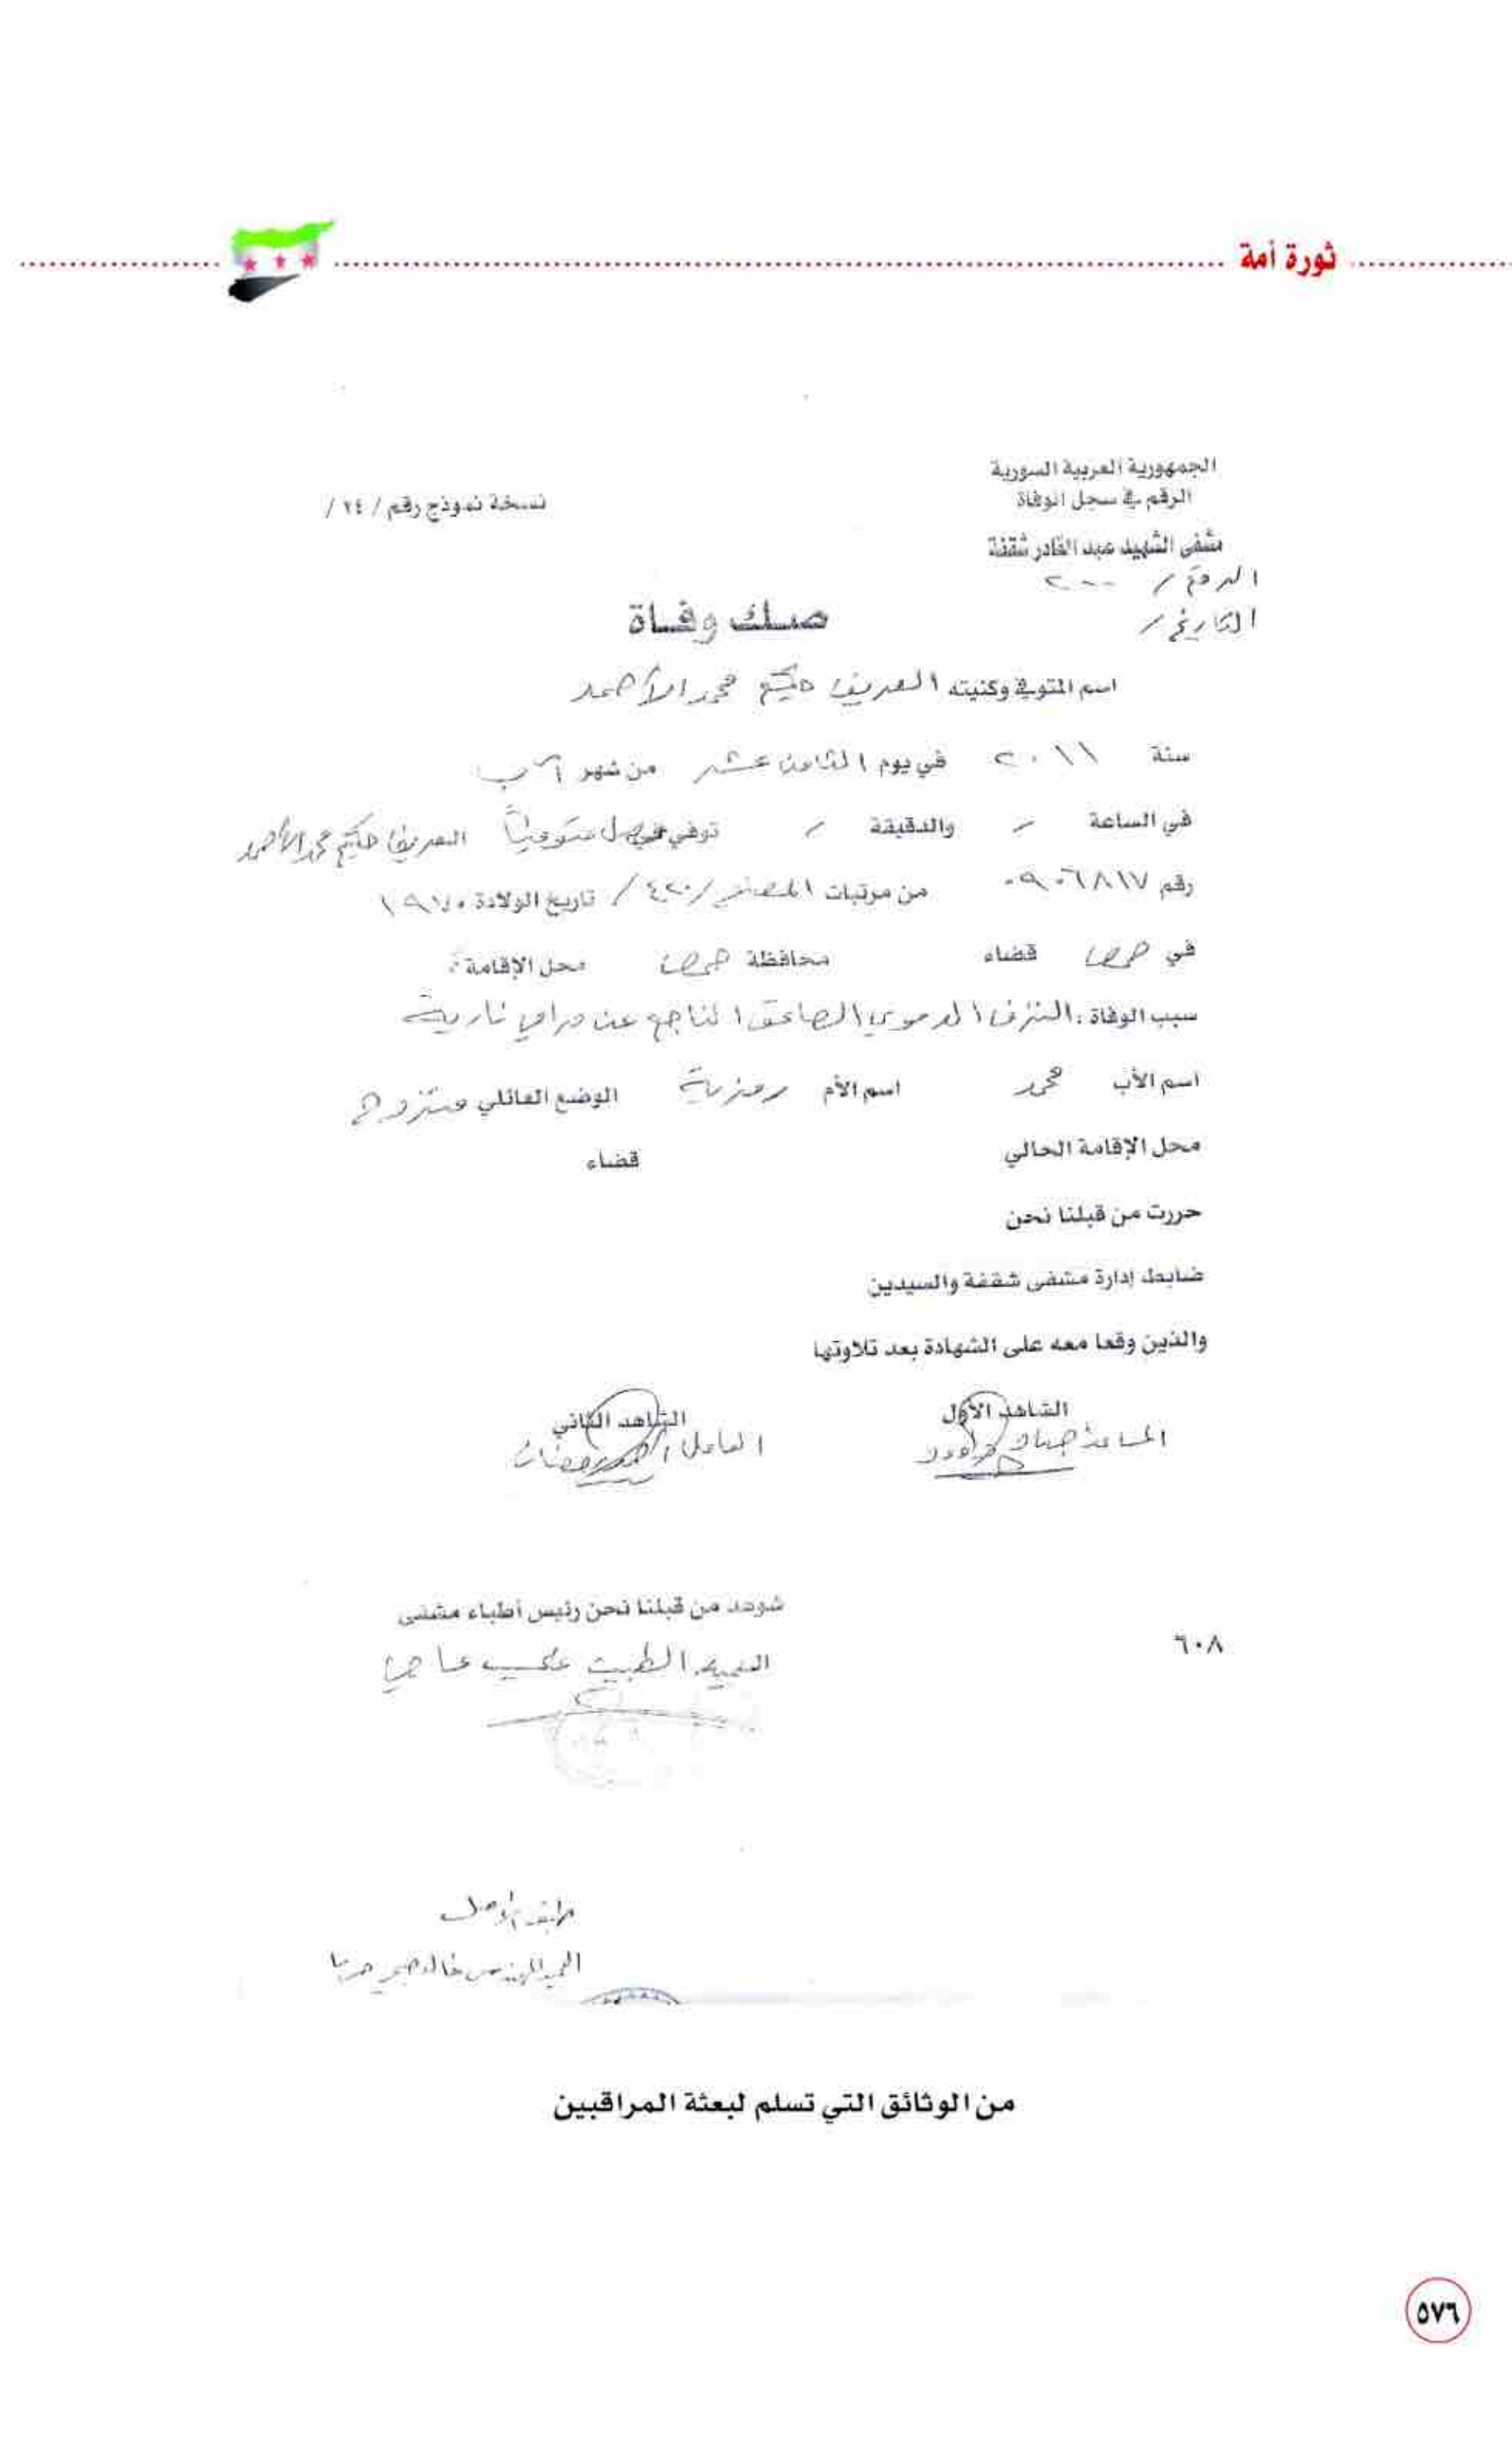 ثورة أمة
الجمهورية العربية السورية
الرقم في سجل الوفاة
نسخة نموذج رقم / ٢٤ /
مشفى الشهيد عبد القادر شقفة
الرقم / ٢٠٠
التاريخ /
صك وفاة
اسم المتوفي وكنيته العريف حكيم محمد الأحمد
سنة ٢٠١١ في يوم الثامن عشر من شهر آب
في الساعة / والدقيقة / توفي وصل متوفياً العريف حكيم محمد الأحمد
رقم ٠٩٠٦٨١٧ من مرتبات /٤٢٠/ تاريخ الولادة ١٩٧٠
في حمص قضاء محافظة حمص محل الإقامة:
سبب الوفاة: النزف الدموي الصاعق الناجم عن مرامي نارية
اسم الأب محمد اسم الأم رمزية الوضع العائلي متزوج
محل الإقامة الحالي قضاء
حررت من قبلنا نحن
ضابط إدارة مشفى شقفة والسيدين
والذين وقعا معه على الشهادة بعد تلاوتها
الشاهد الأول الشاهد الثاني
المساعد العامل
شوهد من قبلنا نحن رئيس أطباء مشفى
العميد الطبيب علي عاصي
٦٠٨
طبق الأصل
العميد المهندس خالد
من الوثائق التي تسلم لبعثة المراقبين
٥٧٦